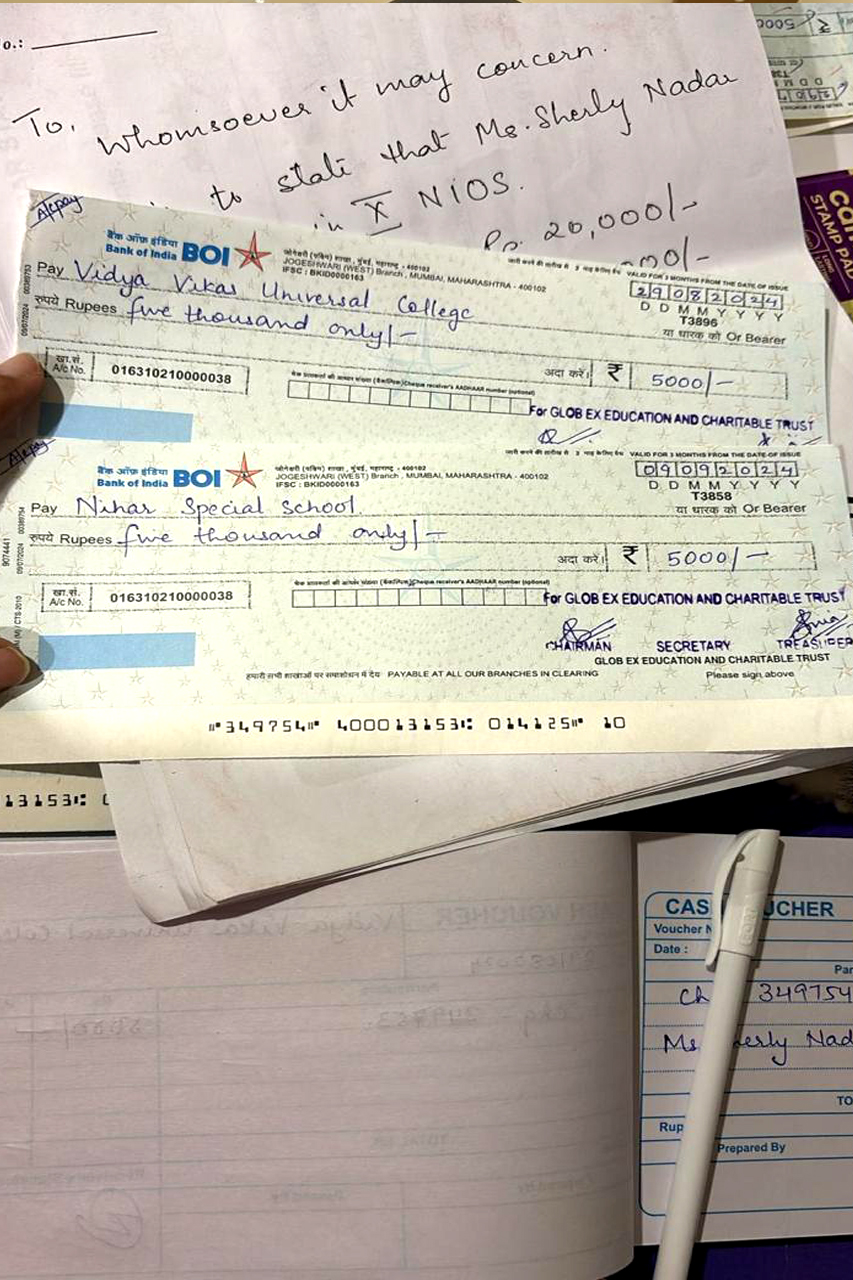 o.:
To,
Whomsoever it may concern.
to state that Ms. Sherly Nadar
in X NIOS.
Rs. 20,000/-
A/c pay
बैंक ऑफ़ इंडिया
Bank of India BOI
जोगेश्वरी (पश्चिम) शाखा, मुंबई, महाराष्ट्र - 400102
JOGESHWARI (WEST) Branch, MUMBAI, MAHARASHTRA - 400102
IFSC : BKID0000163
VALID FOR 3 MONTHS FROM THE DATE OF ISSUE
29082024
D D M M Y Y Y Y
T3896
Pay Vidya Vikas Universal College
या धारक को Or Bearer
रुपये Rupees five thousand only/-
अदा करें। ₹ 5000/-
खा.सं.
A/c No. 016310210000038
Cheque receiver's AADHAAR number (optional)
For GLOB EX EDUCATION AND CHARITABLE TRUST
A/c pay
बैंक ऑफ़ इंडिया
Bank of India BOI
जोगेश्वरी (पश्चिम) शाखा, मुंबई, महाराष्ट्र - 400102
JOGESHWARI (WEST) Branch, MUMBAI, MAHARASHTRA - 400102
IFSC : BKID0000163
VALID FOR 3 MONTHS FROM THE DATE OF ISSUE
09092024
D D M M Y Y Y Y
T3858
Pay Nihar Special School
या धारक को Or Bearer
रुपये Rupees five thousand only/-
अदा करें। ₹ 5000/-
खा.सं.
A/c No. 016310210000038
Cheque receiver's AADHAAR number (optional)
For GLOB EX EDUCATION AND CHARITABLE TRUST
CHAIRMAN SECRETARY TREASURER
GLOB EX EDUCATION AND CHARITABLE TRUST
हमारी सभी शाखाओं पर समाशोधन में देय PAYABLE AT ALL OUR BRANCHES IN CLEARING
Please sign above
⑈349754⑈ 400013153⑆ 014125⑈ 10
13153⑆
STAMP PAD
Voucher N
Date :
Par
349754
Ms
TO
Rup
Prepared By